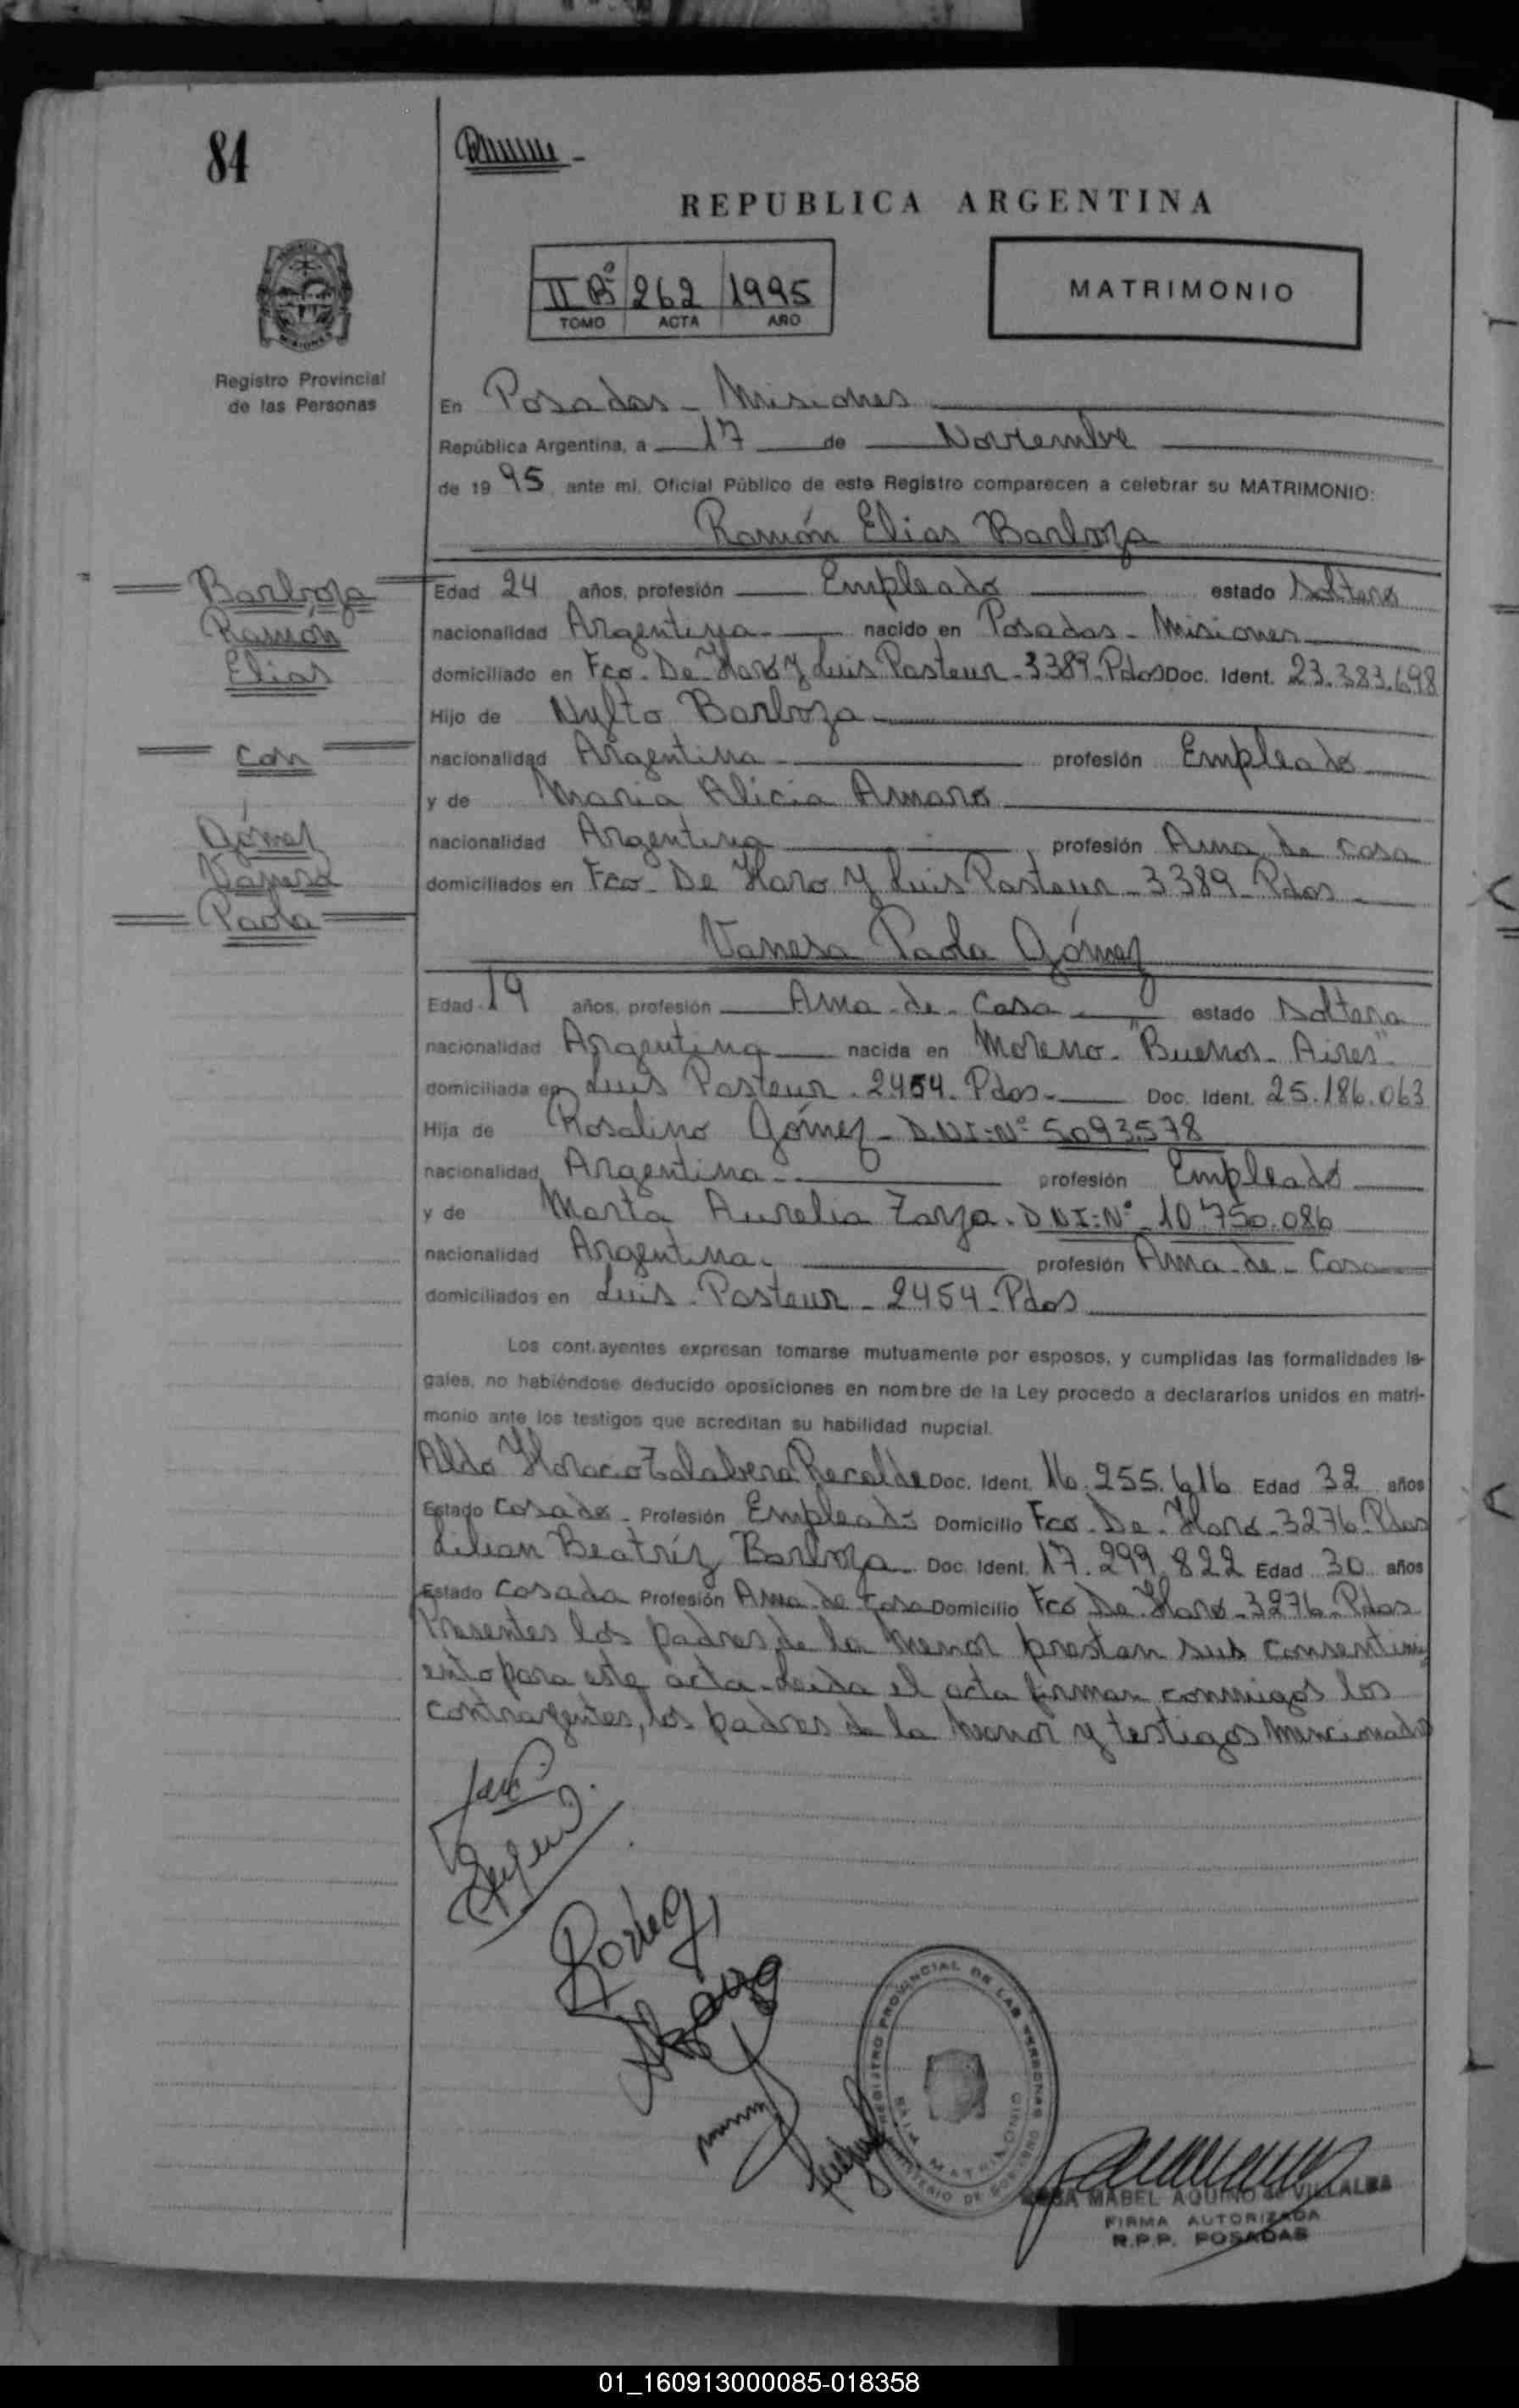 84
REPUBLICA ARGENTINA
II Bº 262 1995
TOMO ACTA AÑO
MATRIMONIO
Registro Provincial
de las Personas
En Posadas - Misiones
República Argentina, a 17 de Noviembre
de 1995 ante mi, Oficial Público de este Registro comparecen a celebrar su MATRIMONIO:
Ramón Elias Barboza
Barboza
Ramón
Elias
con
Gómez
Vanesa
Paola
Edad 24 años, profesión Empleado estado Soltero
nacionalidad Argentina nacido en Posadas - Misiones
domiciliado en Fco. De Haro y Luis Pasteur - 3389 - Pdos Doc. Ident. 23.383.698
Hijo de Nylto Barboza
nacionalidad Argentina profesión Empleado
y de Maria Alicia Amaro
nacionalidad Argentina profesión Ama de casa
domiciliados en Fco De Haro y Luis Pasteur - 3389 - Pdos
Vanesa Paola Gómez
Edad 19 años, profesión Ama - de - Casa estado Soltera
nacionalidad Argentina nacida en Moreno - "Buenos - Aires"
domiciliada en Luis Pasteur - 2454 - Pdos - Doc. Ident. 25.186.063
Hija de Rosalino Gómez - D.N.I: Nº 5093.578
nacionalidad Argentina - profesión Empleado
y de Marta Aurelia Zarza - DNI: Nº 10.750.086
nacionalidad Argentina - profesión Ama - de - Casa
domiciliados en Luis - Pasteur - 2454 - Pdos
Los cont.ayentes expresan tomarse mutuamente por esposos, y cumplidas las formalidades le-
gales, no habiéndose deducido oposiciones en nombre de la Ley procedo a declararlos unidos en matri-
monio ante los testigos que acreditan su habilidad nupcial.
Aldo Horacio Talabera Recalde Doc. Ident. 16.255.616 Edad 32 años
Estado Casado - Profesión Empleado Domicilio Fco - De - Haro - 3276 - Pdos
Lilian Beatríz Barboza - Doc. Ident. 17.299.822 Edad 30 años
Estado Casada Profesión Ama de Casa Domicilio Fco De Haro - 3276 - Pdos
Presentes los padres de la menor prestan sus consentimi
ento para este acta - Leida el acta firman conmigos los
contrayentes, los padres de la menor y testigos mencionado
REGISTRO PROVINCIAL DE LAS PERSONAS
SALA MATRIMONIO
MINISTERIO DE GOBIERNO
MABEL AQUINO de VILLALBA
FIRMA AUTORIZADA
R.P.P. POSADAS
01_160913000085-018358